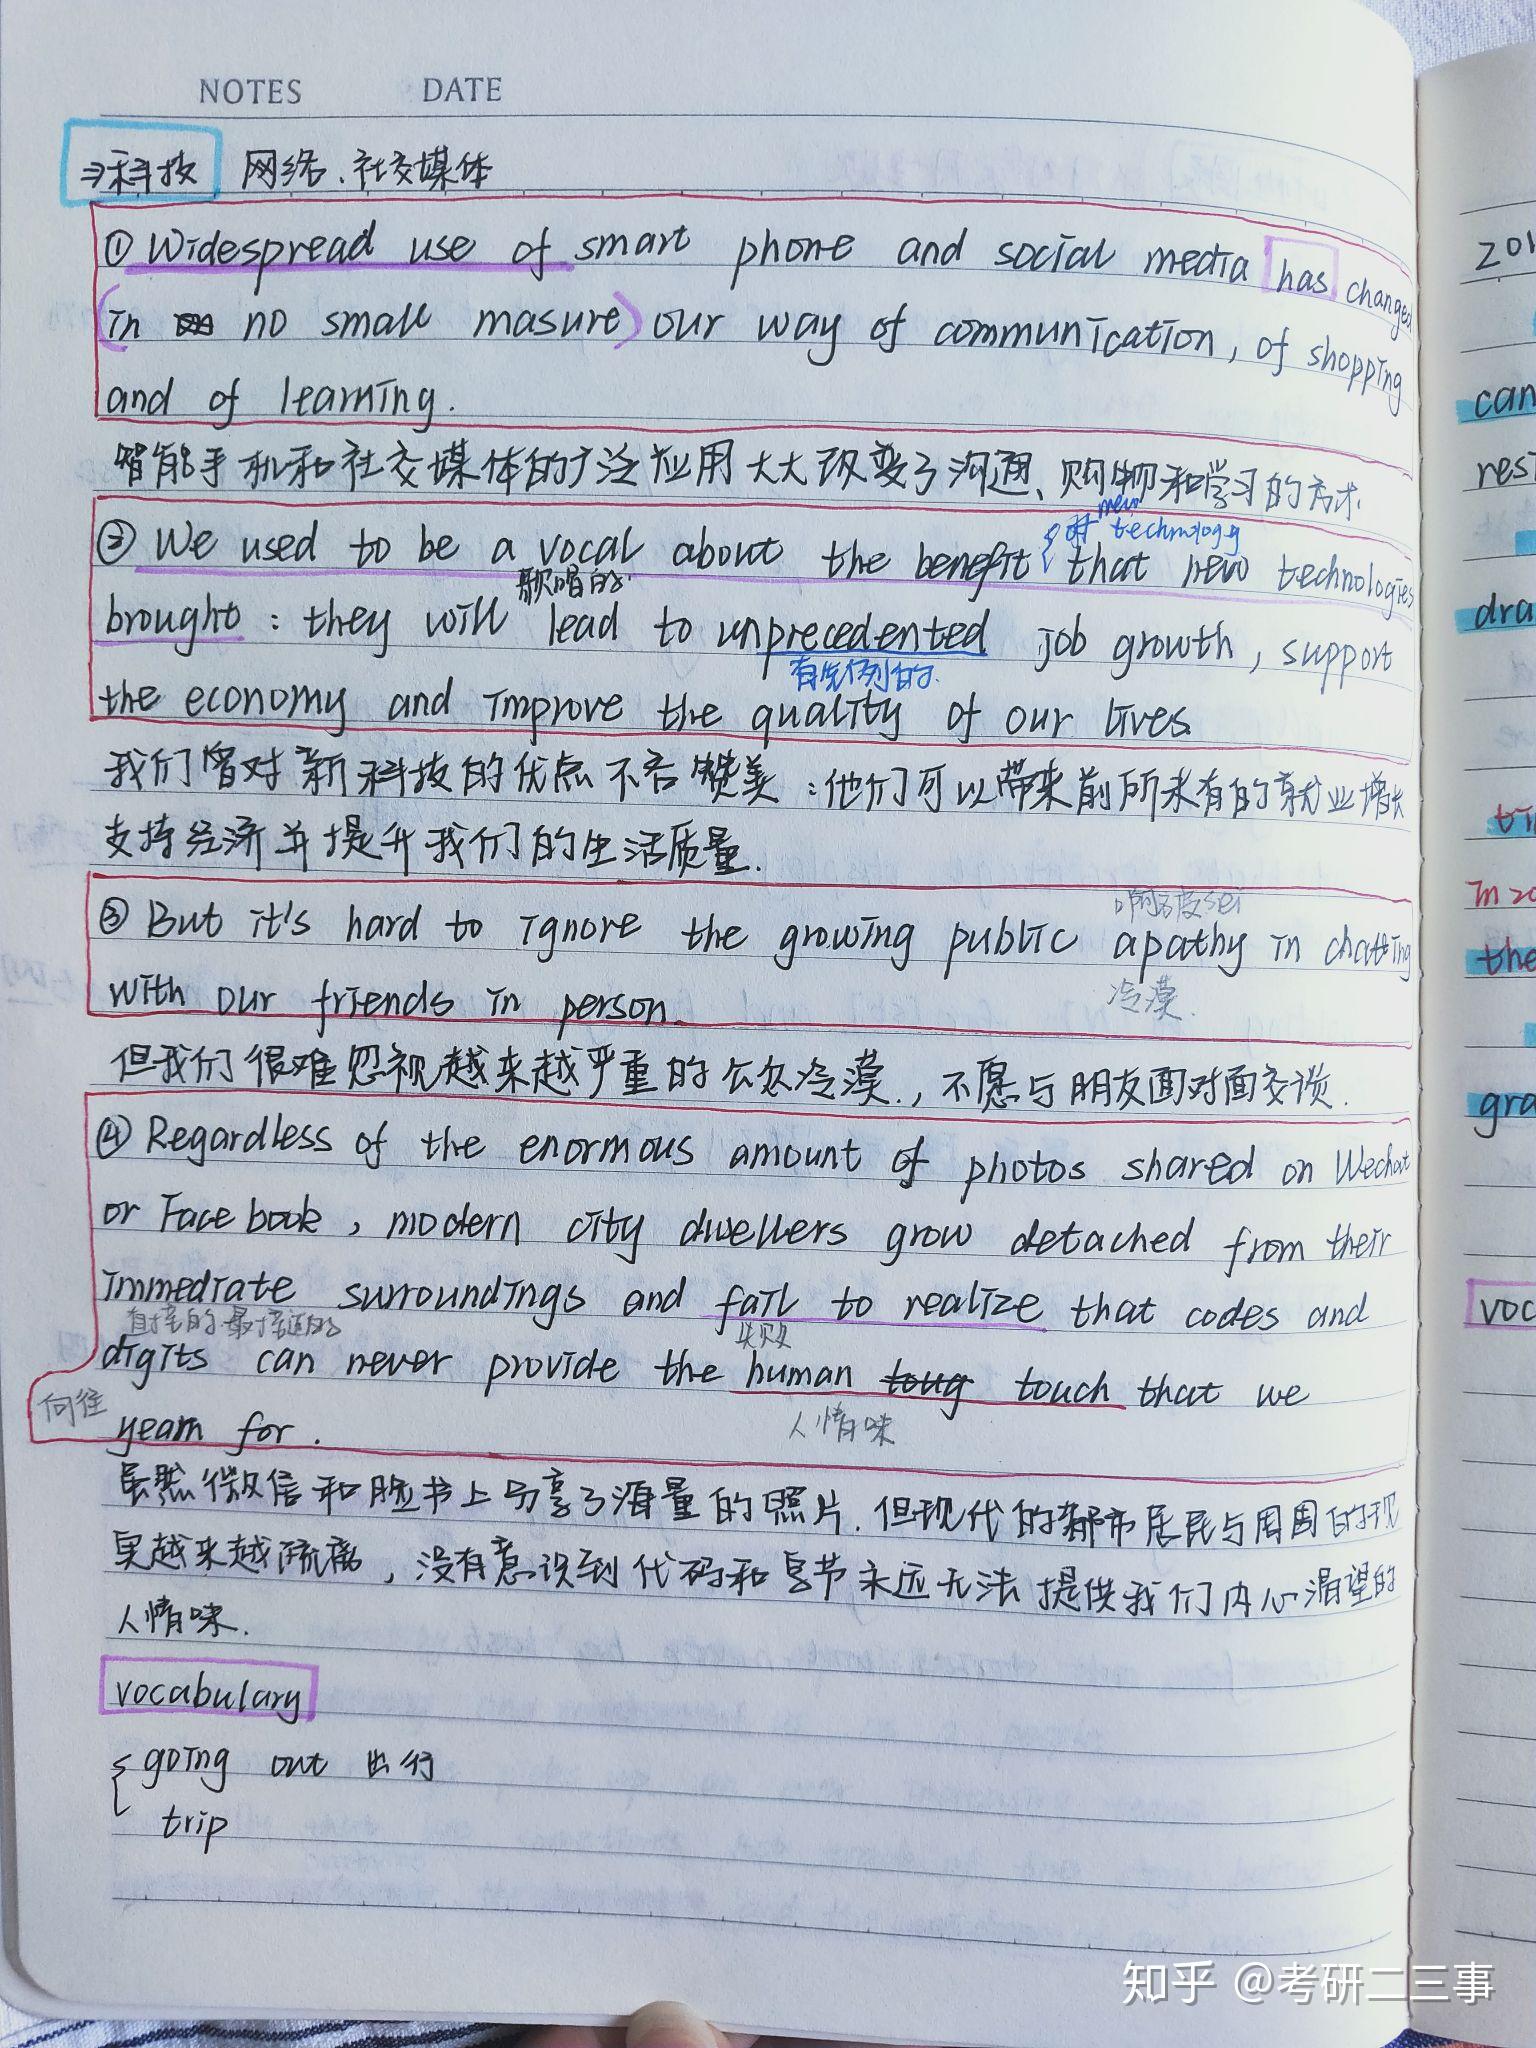 NOTES DATE
⇒科技 网络、社交媒体
① Widespread use of smart phone and social media has changed
(in no small masure) our way of communication, of shopping
and of learning.
智能手机和社交媒体的广泛应用大大改变了沟通、购物和学习的方式.
of new technology
② We used to be a vocal about the benefit that new technologies
歌唱的.
brought : they will lead to unprecedented job growth, support
有先例的.
the economy and improve the quality of our lives.
我们曾对新科技的优点不吝赞美：他们可以带来前所未有的就业增长
支持经济并提升我们的生活质量.
啊破sei
③ But it's hard to ignore the growing public apathy in chatting
冷漠.
with our friends in person.
但我们很难忽视越来越严重的公众冷漠.，不愿与朋友面对面交谈.
④ Regardless of the enormous amount of photos shared on Wechat
or Facebook, modern city dwellers grow detached from their
immediate surroundings and fail to realize that codes and
直接的.最接近的 失败
digits can never provide the human toug touch that we
向往 人情味
yearn for.
虽然微信和脸书上分享了海量的照片.但现代的都市居民与周围的现
实越来越疏离，没有意识到代码和字节永远无法提供我们内心渴望的
人情味.
vocabulary
{ going out 出行
trip
201
can
res
dra
in 20
the
gra
voc
知乎 @考研二三事